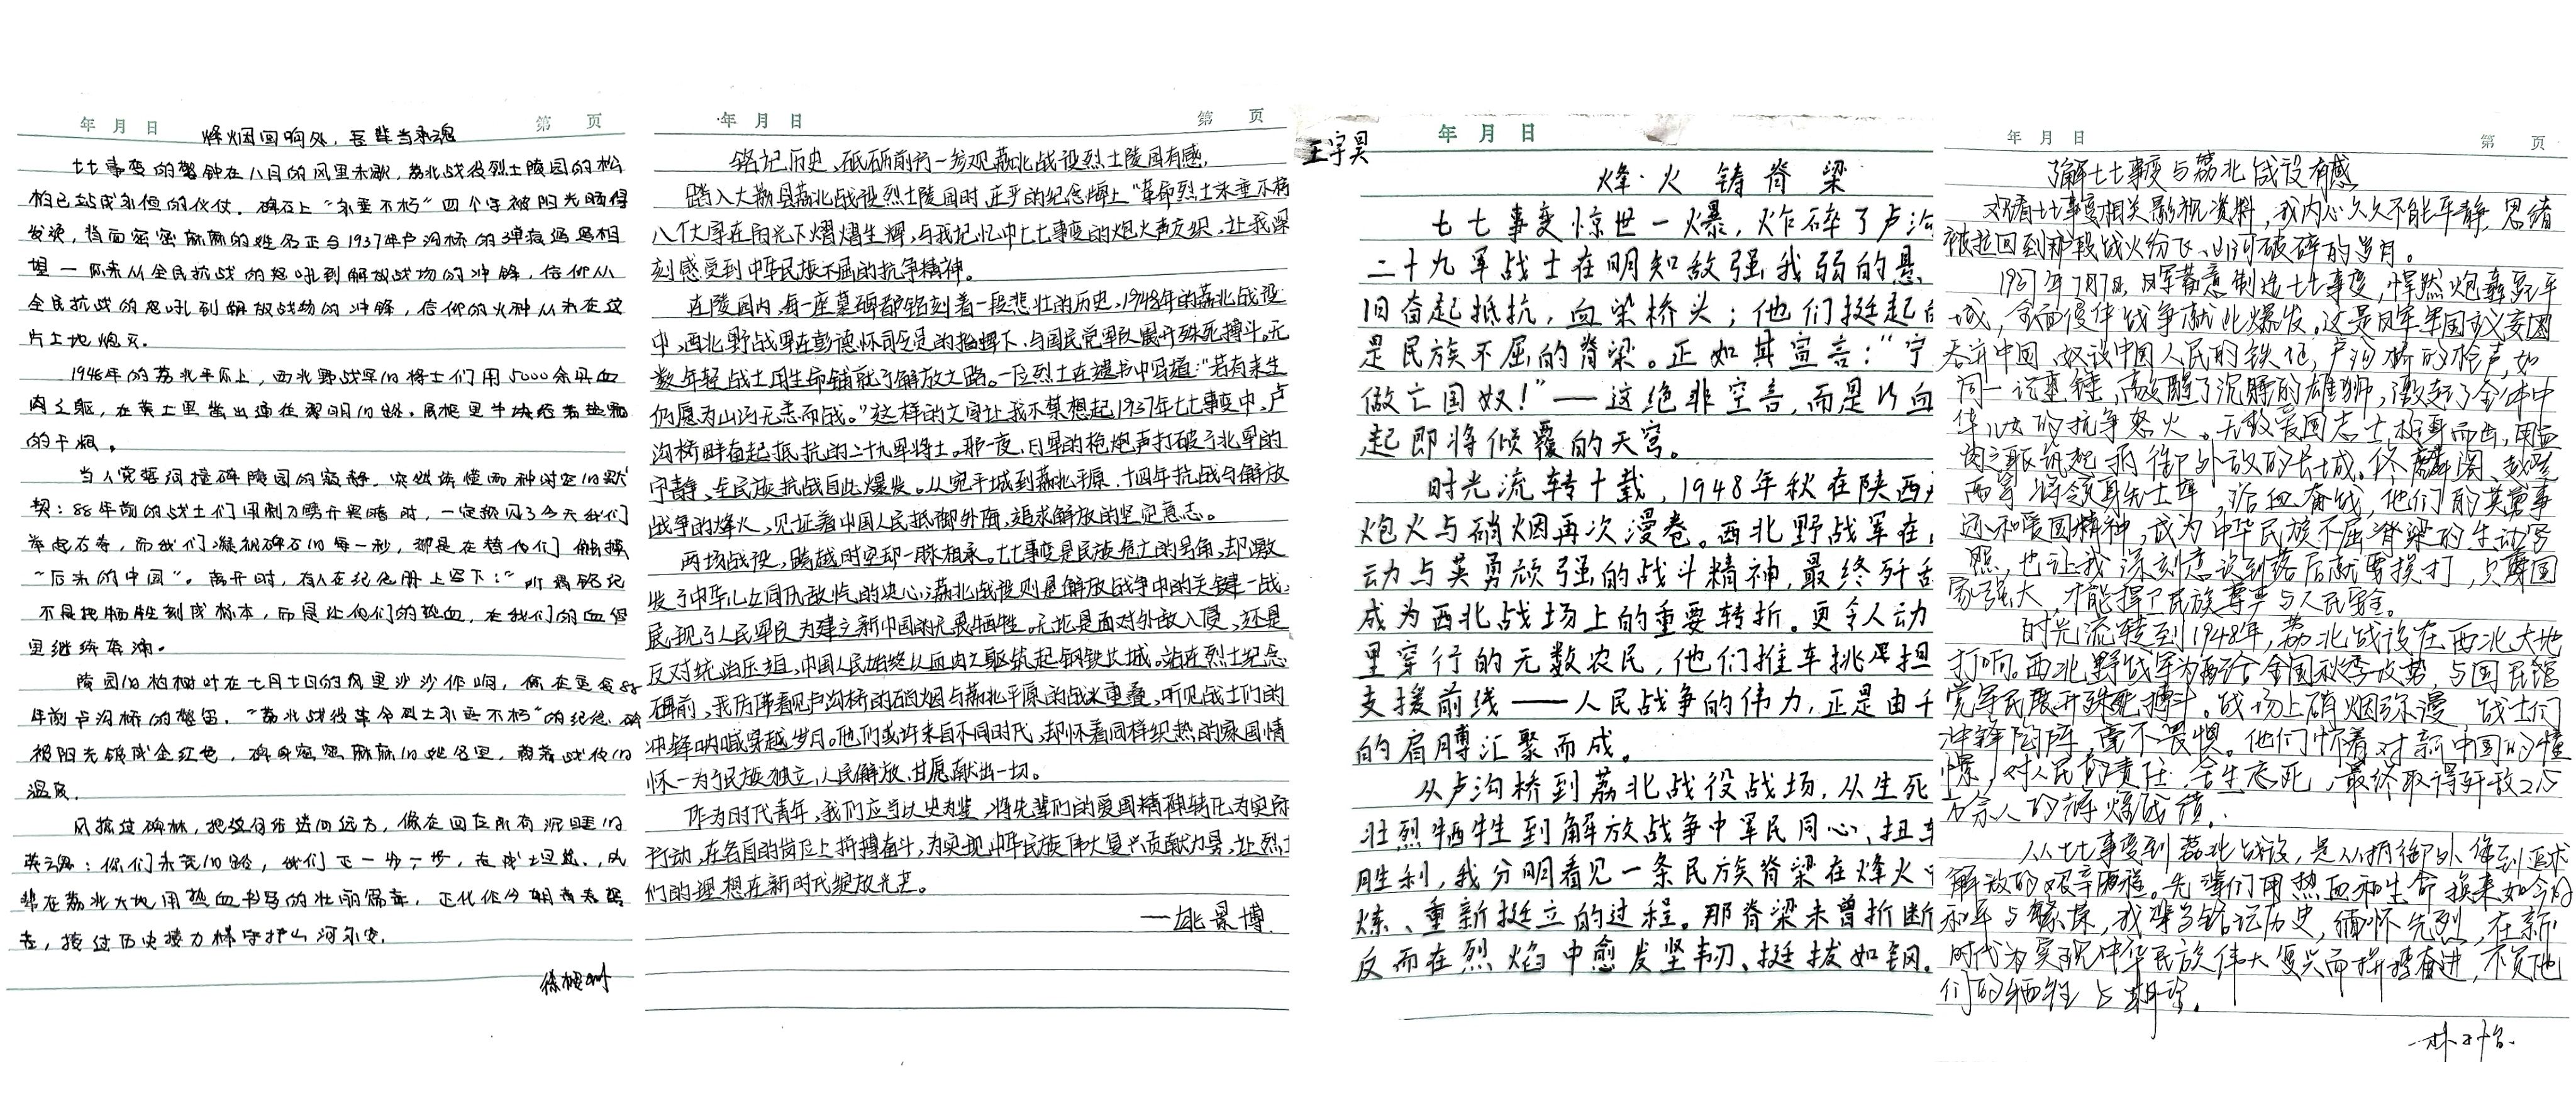 年 月 日
第 页
烽烟回响处,吾辈当承魂
七七事变的警钟在八月的风里未歇,荔北战役烈士陵园的松
柏已站成永恒的仪仗。碑石上“永垂不朽”四个字被阳光晒得
发烫,背面密密麻麻的姓名正与1937年卢沟桥的弹痕遥遥相
望—原来从全民抗战的怒吼到解放战场的冲锋,信仰从
全民抗战的怒吼到解放战场的冲锋,信仰的火种从未在这
片土地熄灭。
1948年的荔北平原上,西北野战军的将士们用5000余具血
肉之躯,在黄土里凿出通往黎明的路。展柜里半块
的干粮。
当人
契:88年前的战士们用刺刀劈开黑暗时,一定瞥见了今天我们
举起右拳,而我们凝视碑石的每一秒,都是在替他们触摸
“后来的中国”。离开时,有人在纪念册上写下:“所谓铭记
不是把牺牲刻成标本,而是让他们的热血,在我们的血管
里继续奔涌。
陵园的柏树叶在七月七日的风里沙沙作响,像在复合88
年前卢沟桥的警笛。“荔北战役革命烈士永垂不朽”的纪念碑
被阳光镀成金红色,碑身密密麻麻的姓名里,藏着战役的
温度。
风掠过碑林,把这句话送向远方,像在回应所有沉睡的
英魂:你们未走的路,我们正一步一步,走成坦途。
辈在荔北大地用热血书写的壮丽篇章,正化作今朝青春誓
言,接过历史接力棒守护山河永安。
年 月 日
第 页
铭记历史、砥砺前行—参观荔北战役烈士陵园有感.
踏入大荔县荔北战役烈士陵园时,庄严的纪念碑上“革命烈士永垂不朽
八个大字在阳光下熠熠生辉,与我记忆中七七事变的炮火声交织,让我深
刻感受到中华民族不屈的抗争精神。
在陵园内,每一座墓碑都铭刻着一段悲壮的历史,1948年的荔北战役
中,西北野战军在彭德怀司令员的指挥下,与国民党军队展开殊死搏斗。无
数年轻战士用生命铺就了解放之路。一位烈士在遗书中写道:“若有来生
仍愿为山河无恙而战。”这样的文字让我不禁想起1937年七七事变中,卢
沟桥畔奋起抵抗的二十九军将士。那一夜,日军的枪炮声打破了北平的
宁静,全民族抗战自此爆发。从宛平城到荔北平原,十四年抗战与解放
战争的烽火,见证着中国人民抵御外侮,追求解放的坚定意志。
两场战役,跨越时空却一脉相承。七七事变是民族危亡的号角,却激
发了中华儿女同仇敌忾的决心;荔北战役则是解放战争中的关键一战,
展现了人民军队为建立新中国的无畏牺牲。无论是面对外敌入侵,还是
反对统治压迫,中国人民始终以血肉之躯筑起钢铁长城。站在烈士纪念
碑前,我仿佛看见卢沟桥的硝烟与荔北平原的战火重叠,听见战士们的
冲锋呐喊穿越岁月。他们或许来自不同时代,却怀着同样炽热的家国情
怀—为了民族独立,人民解放,甘愿献出一切。
作为时代青年,我们应当以史为鉴,将先辈们的爱国精神转化为实际
行动,在各自的岗位上拼搏奋斗,为实现中华民族伟大复兴贡献力量,让烈士
们的理想在新时代绽放光芒。
—姚景博
王宇昊
年 月 日
烽·火 铸 脊 梁
七七事变惊世一爆,炸碎了卢沟
二十九军战士在明知敌强我弱的悬
旧奋起抵抗,血染桥头;他们挺起的
是民族不屈的脊梁。正如其宣言:“宁
做亡国奴!”——这绝非空言,而是以血
起即将倾覆的天穹。
时光流转十载,1948年秋在陕西
炮火与硝烟再次漫卷。西北野战军在
动与英勇顽强的战斗精神,最终歼
成为西北战场上的重要转折。更令人动
里穿行的无数农民,他们推车挑担
支援前线——人民战争的伟力,正是由千
的肩膊汇聚而成。
从卢沟桥到荔北战役战场,从生死
壮烈牺牲到解放战争中军民同心、扭
胜利,我分明看见一条民族脊梁在烽火中
炼、重新挺立的过程。那脊梁未曾折断
反而在烈焰中愈发坚韧、挺拔如钢。
年 月 日
第 页
了解七七事变与荔北战役有感
观看七七事变相关影视资料,我内心久久不能平静,思绪
被拉回到那段战火纷飞、山河破碎的岁月。
1937年7月7日,日军蓄意制造七七事变,悍然炮轰宛平
城,全面侵华战争就此爆发。这是日军军国主义妄图
吞并中国、奴役中国人民的铁证,卢沟桥的枪声,如
同一记重锤,敲醒了沉睡的雄狮,激起了全体中
华儿女的抗争怒火。无数爱国志士挺身而出,用血
肉之躯筑起抵御外敌的长城。佟麟阁、赵登
禹等将领身先士卒,浴血奋战,他们的英勇事
迹和爱国精神,成为中华民族不屈脊梁的生动写
照,也让我深刻意识到落后就要挨打,只有国
家强大,才能捍卫民族尊严与人民安全。
时光流转到1948年,荔北战役在西北大地
打响。西北野战军为配合全国秋季攻势,与国民党
党军民展开殊死搏斗。战场上硝烟弥漫,战士们
冲锋陷阵,毫不畏惧。他们怀着对新中国的憧
憬,对人民的责任,舍生忘死,最终取得歼敌2.5
万余人的辉煌战绩。
从七七事变到荔北战役,是从抵御外侮到追求
解放的艰辛历程。先辈们用热血和生命换来如今的
和平与繁荣,我辈当铭记历史,缅怀先烈,在新
时代为实现中华民族伟大复兴而拼搏奋进,不负他
们的牺牲与期望。